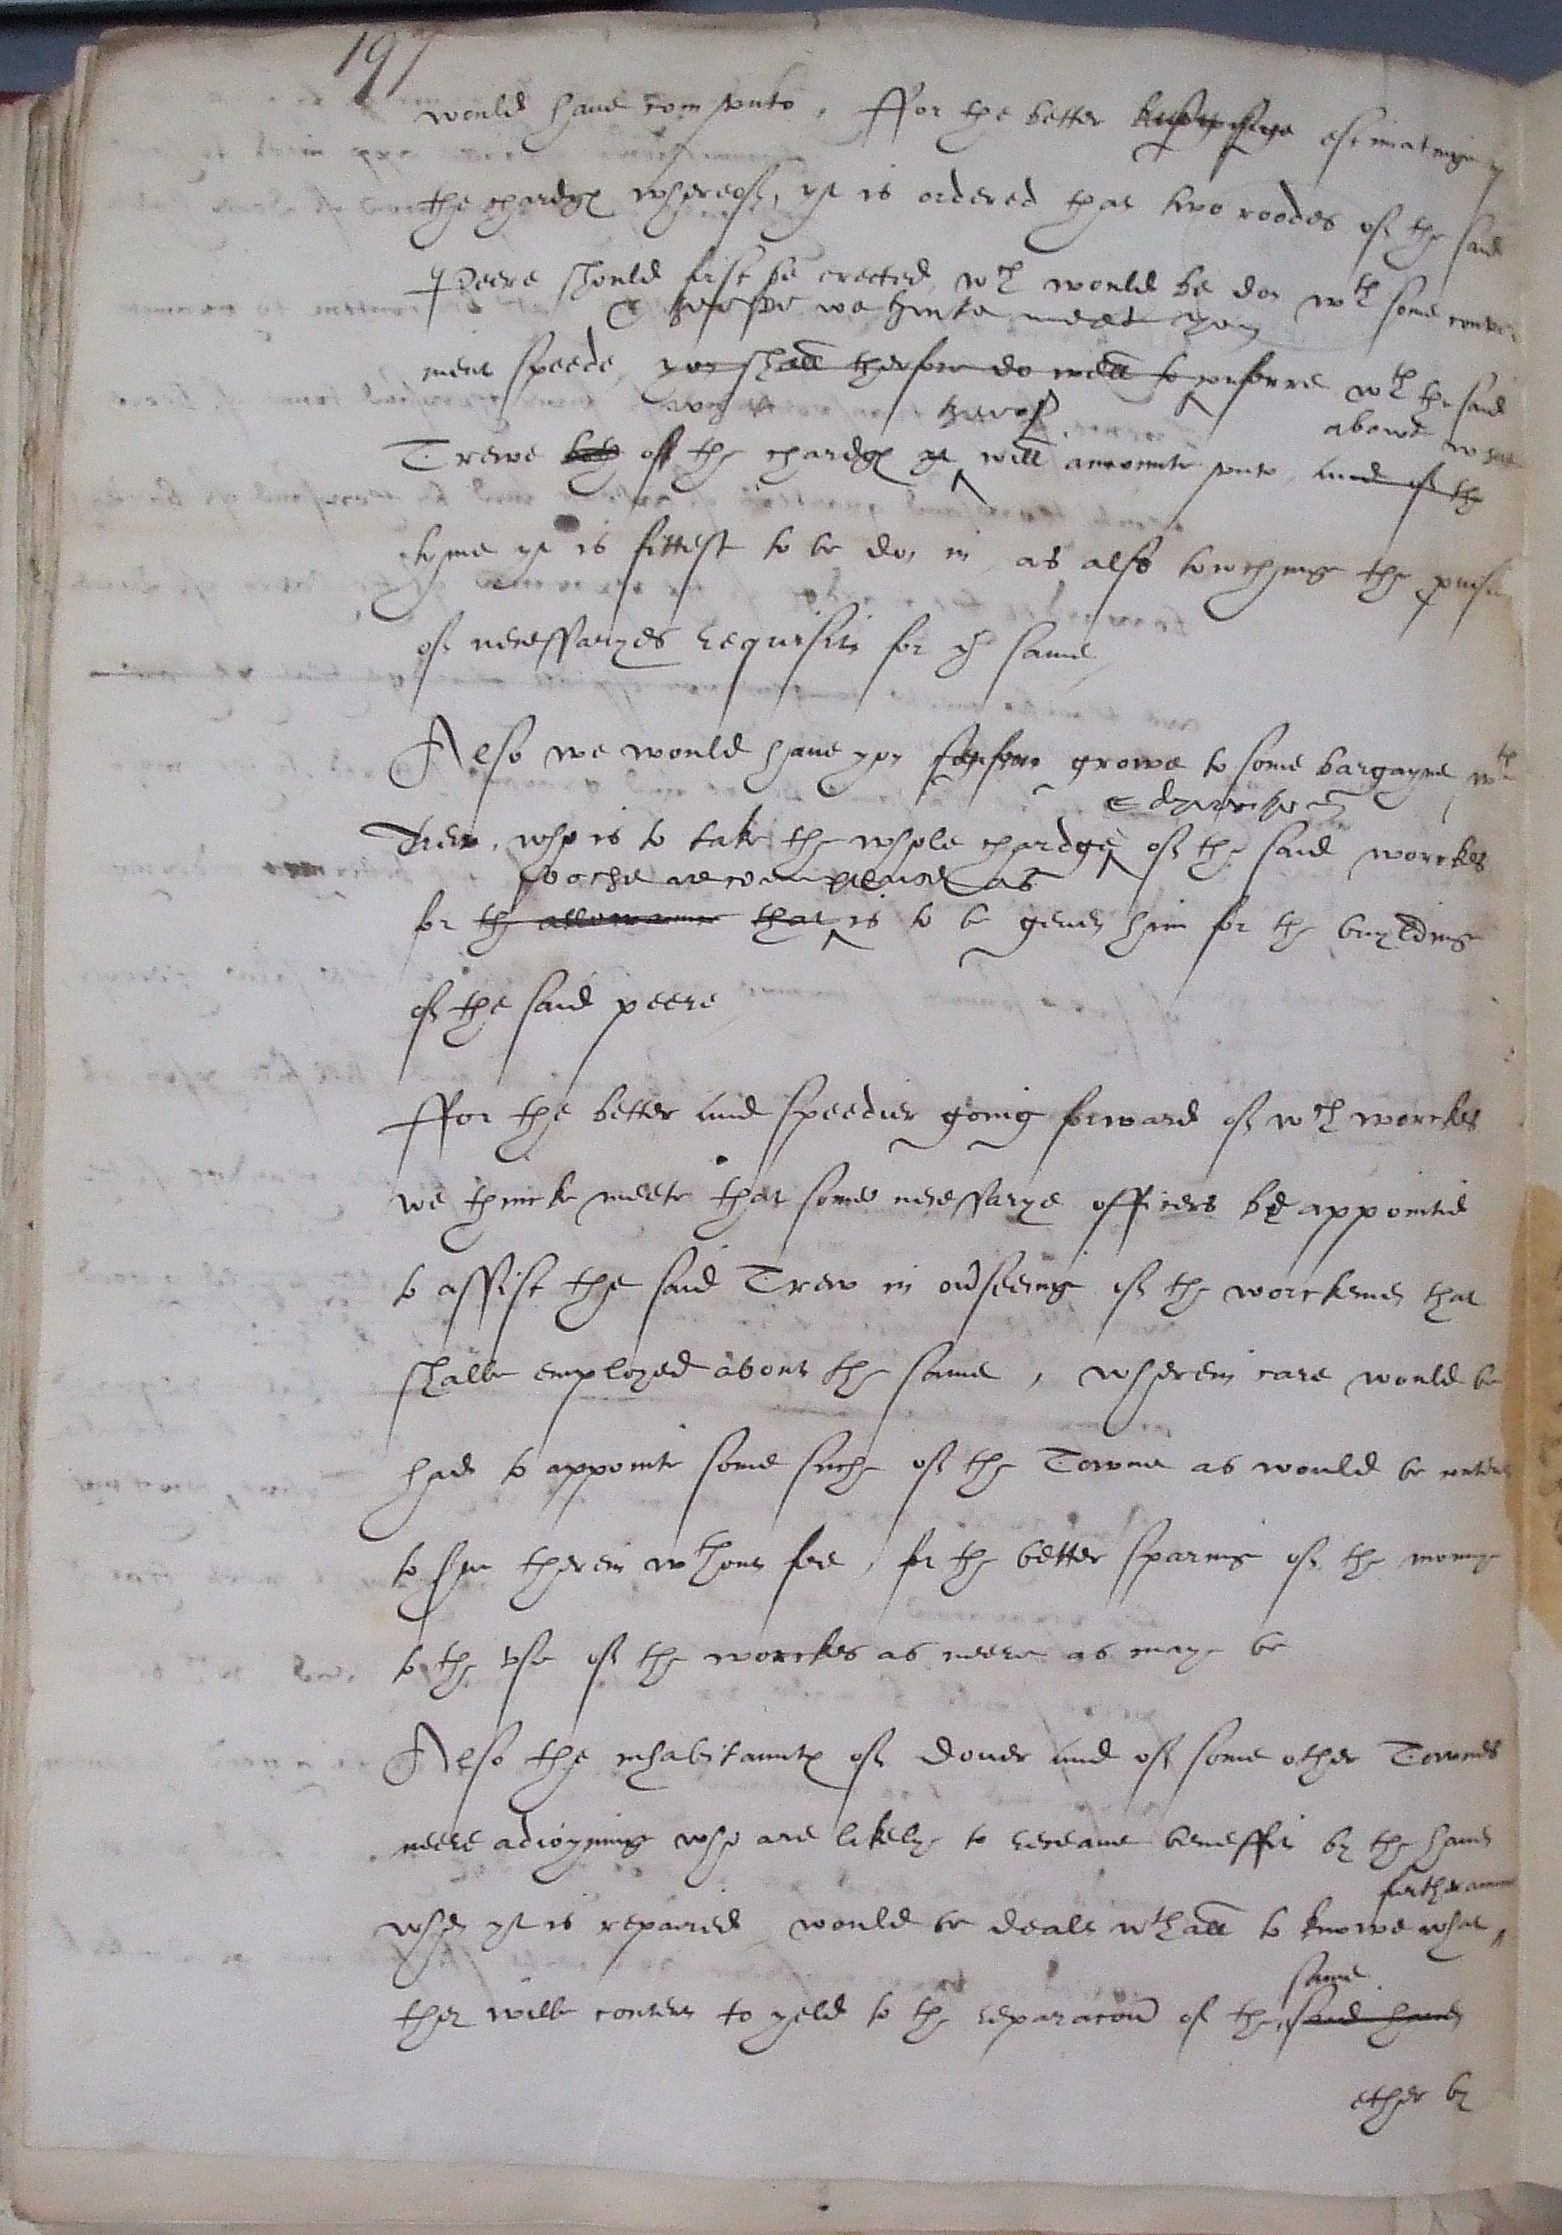 197
would haue com vnto, ffor the better estimatinge
the chardg whereof, yt is ordered that two roodes of the said
Peere should first be erected, wch would be don wth some conve
& therfore we thinke meet you
nient speede, you shall therfore do well to conferre wth the said
therof
about what
Trewe both of the chardg yt will amounte vnto, and of the
tyme yt is fittest to be don in, as also towchinge the
of necessaryes requisite for the same
Also we would haue you therfore growe to some bargayne wth
Trew, who is to take the whole chardge of the said workes
soche recompence as
for the allowance that is to be geuen him for the buyldinge
of the said peere
ffor the better and speedier going forward of wch workes
we thincke meete that some necessarye officers be appointed
to assist the said Trew in ouerseeing of the workemen that
shalbe employed about the same, wherein care would be
had to appointe some suche of the Towne as would be content
to therein wthout fee, for the better sparing of the money
to the vse of the workes as neere as maye be
Also the inhabitauntes of Douer and of some other Townes
neere adioyning who are likely to receaue benefit by the hauen
furtheraunce
when yt is repaired would be dealt wthall to knowe what
same
they wilbe content to yeld to the reparacion of the said hauen
ether by